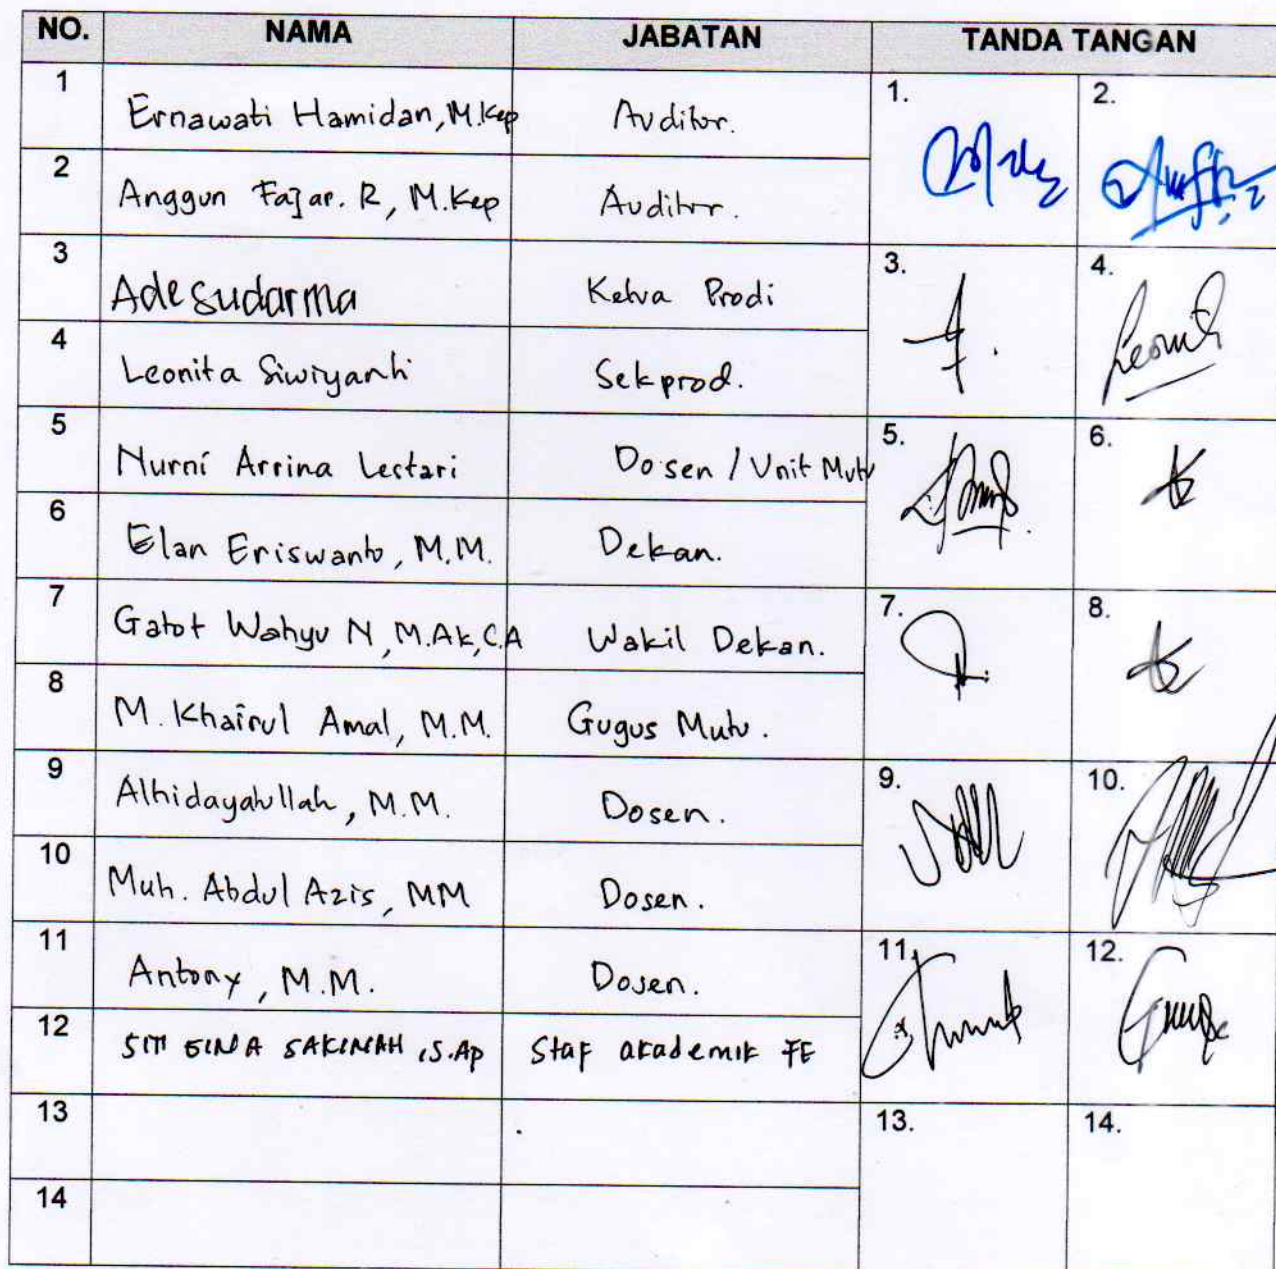 NO. NAMA JABATAN TANDA TANGAN
1 Ernawati Hamidan, M.Kep Auditor. 1. 2.
2 Anggun Fajar. R, M.Kep Auditor.
3 Ade Sudarma Ketua Prodi 3. 4.
4 Leonita Siwiyanti Sekprod.
5 Nurni Arrina Lestari Dosen / Unit Mutu 5. 6.
6 Elan Eriswanto, M.M. Dekan.
7 Gatot Wahyu N, M.Ak, C.A Wakil Dekan. 7. 8.
8 M. Khairul Amal, M.M. Gugus Mutu.
9 Alhidayatullah, M.M. Dosen. 9. 10.
10 Muh. Abdul Azis, MM Dosen.
11 Antony, M.M. Dosen. 11. 12.
12 SITI SAKINAH, S.AP Staf akademik FE
13 13. 14.
14